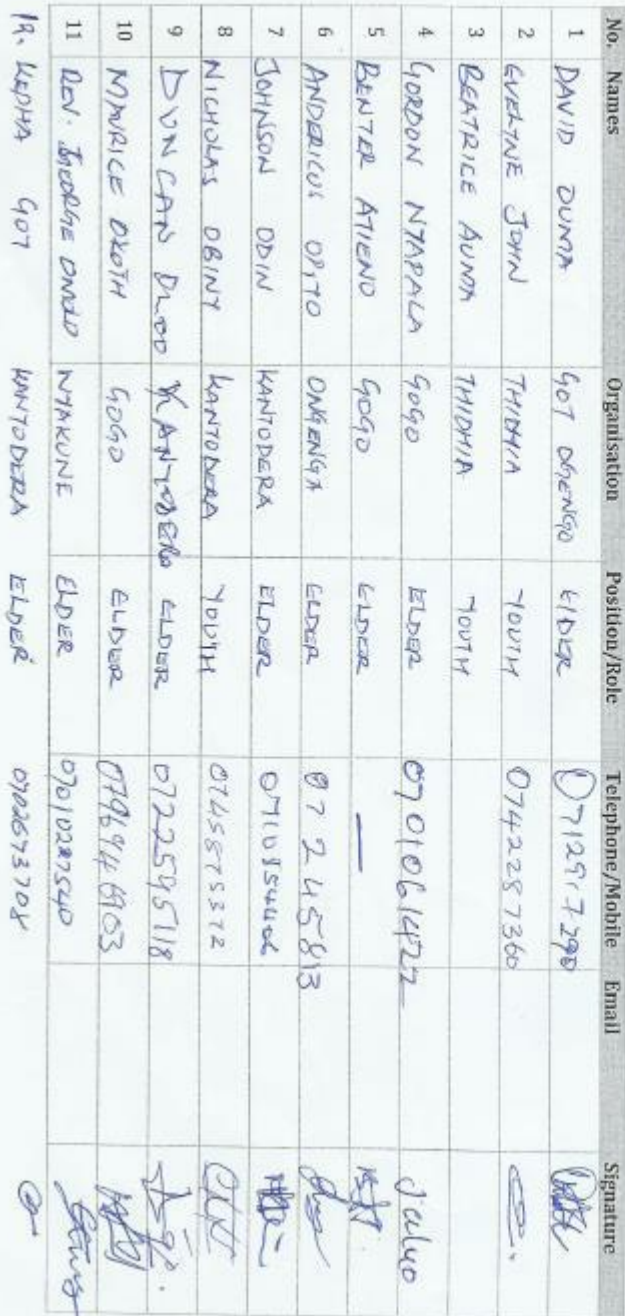 No. Names Organisation Position/Role Telephone/Mobile Email Signature
1 DAVID OUMA GOT OGENGO ElDER 0712917290
2 EVELYNE JOHN THIDHIA YOUTH 0742287360
3 BEATRICE AUMA THIDHIA YOUTH
4 GORDON NYAPALA GOGO ELDER 0701061422
5 BENTER ATIENO GOGO ELDER —
6 ANDERICUS OPITO ONGENGA ELDER 07245813
7 JOHNSON ODIN KANYODERA ELDER
8 NICHOLAS OBINY KANYODERA YOUTH 0745575372
9 DUNCAN KANYODERA ELDER 0722595118
10 MAURICE OKOTH GOGO ELDER
11 REV. GEORGE OMOLO NYAKUNE ELDER
12. KEPHA GOT KANYODERA ELDER 0702673708